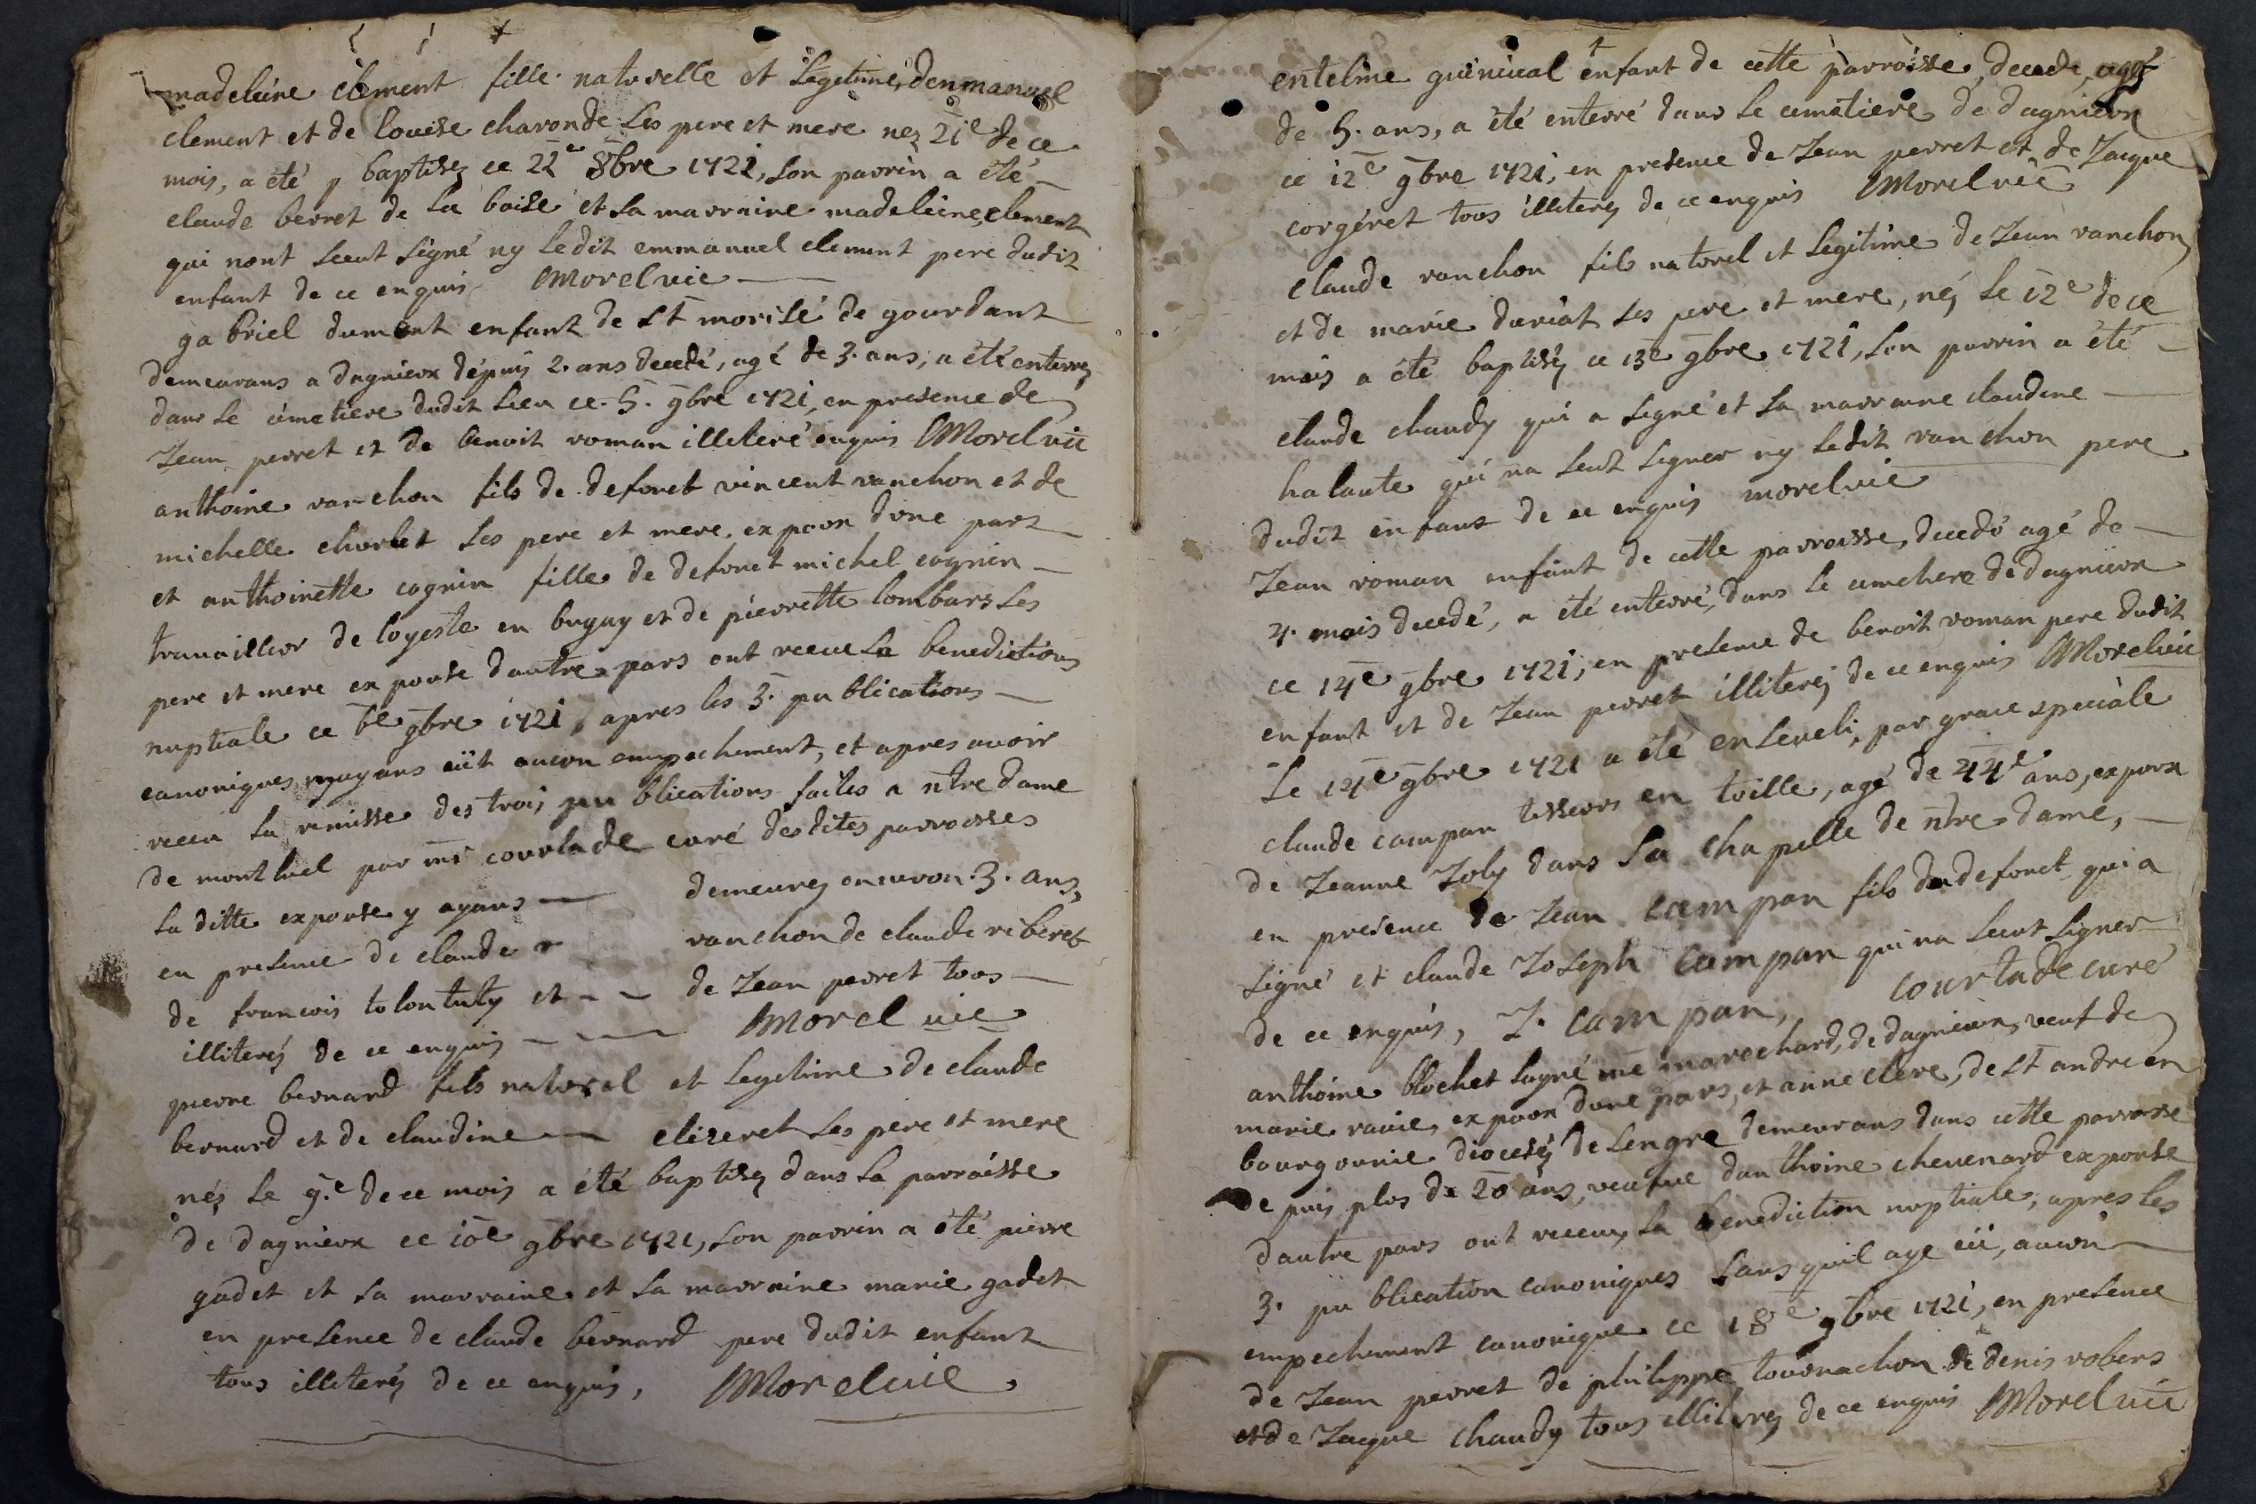 madeleine clement fille naturelle et Legitime, denmanuel
clement et de louise charonde Les pere et mere nez 21e de ce
mois, a été baptisez ce 22e 8bre 1721, Son parrin a été
claude berret de La boise et sa marraine madeleine clement
qui nont sceut Signé ny Ledit emmanuel clement pere dudit
enfant de ce enquis Morel vic
gabriel dumont enfant de st morise de gourdant
demeurans a dagnieux dépuis 2. ans decedé, agé de 3. ans, a été enterrez
dans Le cimetiere dudit Lieu ce. 5. 9bre 1721, en presence de
Jean perret et de benoit roman illiteré enquis Morel vic
anthoine vanchon fils de defunct vincent vanchon et de
michelle chorlet Ses pere et mere. expoux dune part
et anthoinette cognin fille de defunct michel cognin
travailleur de loyeste en bugay et de pierrette lombars Ses
pere et mere expouse dautre pars ont receu La benedictions
nuptiale ce 6e 9bre 1721, apres les 3. publications
canoniques nyayans eüt aucun empechement, et apres avoir
receu La remisse des trois publications faites a ntre dame
de montluel par mr courtade curé desdites parroisses
La ditte expouse y ayans demeurez environ. 3. ans,
en presence de claude vanchon de claude riberet
de francois tolontuty et de Jean perret tous
illiterés de ce enquis Morel vic
pierre bernard fils naturel et Legitime de claude
bernard et de claudine elizeret Ses pere et mere
nés Le 9.e de ce mois a été baptisez dans La parroisse
de dagnieux ce 10e 9bre 1721, Son parrin a été pierre
gadet et Sa marraine et Sa marraine marie gadet
en presence de claude bernard pere dudit enfant
tous illiterés de ce enquis, Morel vic
entelme guinical enfant de cette parroisse, decede, agé
de 5. ans, a été enterré dans Le cimetiere de dagnieux
ce 12e 9bre 1721, en presence de Jean perret et de Jacque
corgéret tous illiterez de ce enquis Morel vic
claude vanchon fils naturel et Legitime de Jean vanchon
et de marie duriat Ses pere et mere, néz Le 12e de ce
mois a été baptisé, ce 13e 9bre 1721, Son parrin a été
claude chaudy qui a Signé et Sa marraine claudine
halante qui na Sceut Signer ny Ledit vanchon pere
dudit enfant de ce enquis morel vic
Jean roman enfant de cette parroisse, decedé agé de
4. mois decedé, a été enterré, dans Le cimetiere de dagnieux
ce 14e 9bre 1721, en presence de benoit roman pere dudit
enfant et de Jean perret illiteréz de ce enquis Morel vic
Le 14e 9bre 1721 a été enseveli, par grace speciale
claude campan tisseurs en toille, agé de 44e ans, expoux
de Jeanne Joly dans La chapelle de ntre dame,
en presence de Jean campan fils du defunct qui a
Signé et claude Joseph campan qui na Sceut Signer
de ce enquis, J. campan, courtade curé
anthoine blochet Lagné me marechard, de dagnieux, veuf de
marie ravie, expoux dune pars, et anne clere, de st andre en
bourgounie diocesez de Lengre demeurans dans cette parroisse
depuis plus de 20 ans, veufve danthoine chevenard expouse
dautre pars ont receux La benediction nuptiale, apres les
3. publication canoniques Sans quil aye eü, aucun
empechement canonique ce 18e 9bre 1721, en presence
de Jean perret de philippe tournachon de denis robers
et de Jacque chaudy tous illiterez de ce enquis Morel vic